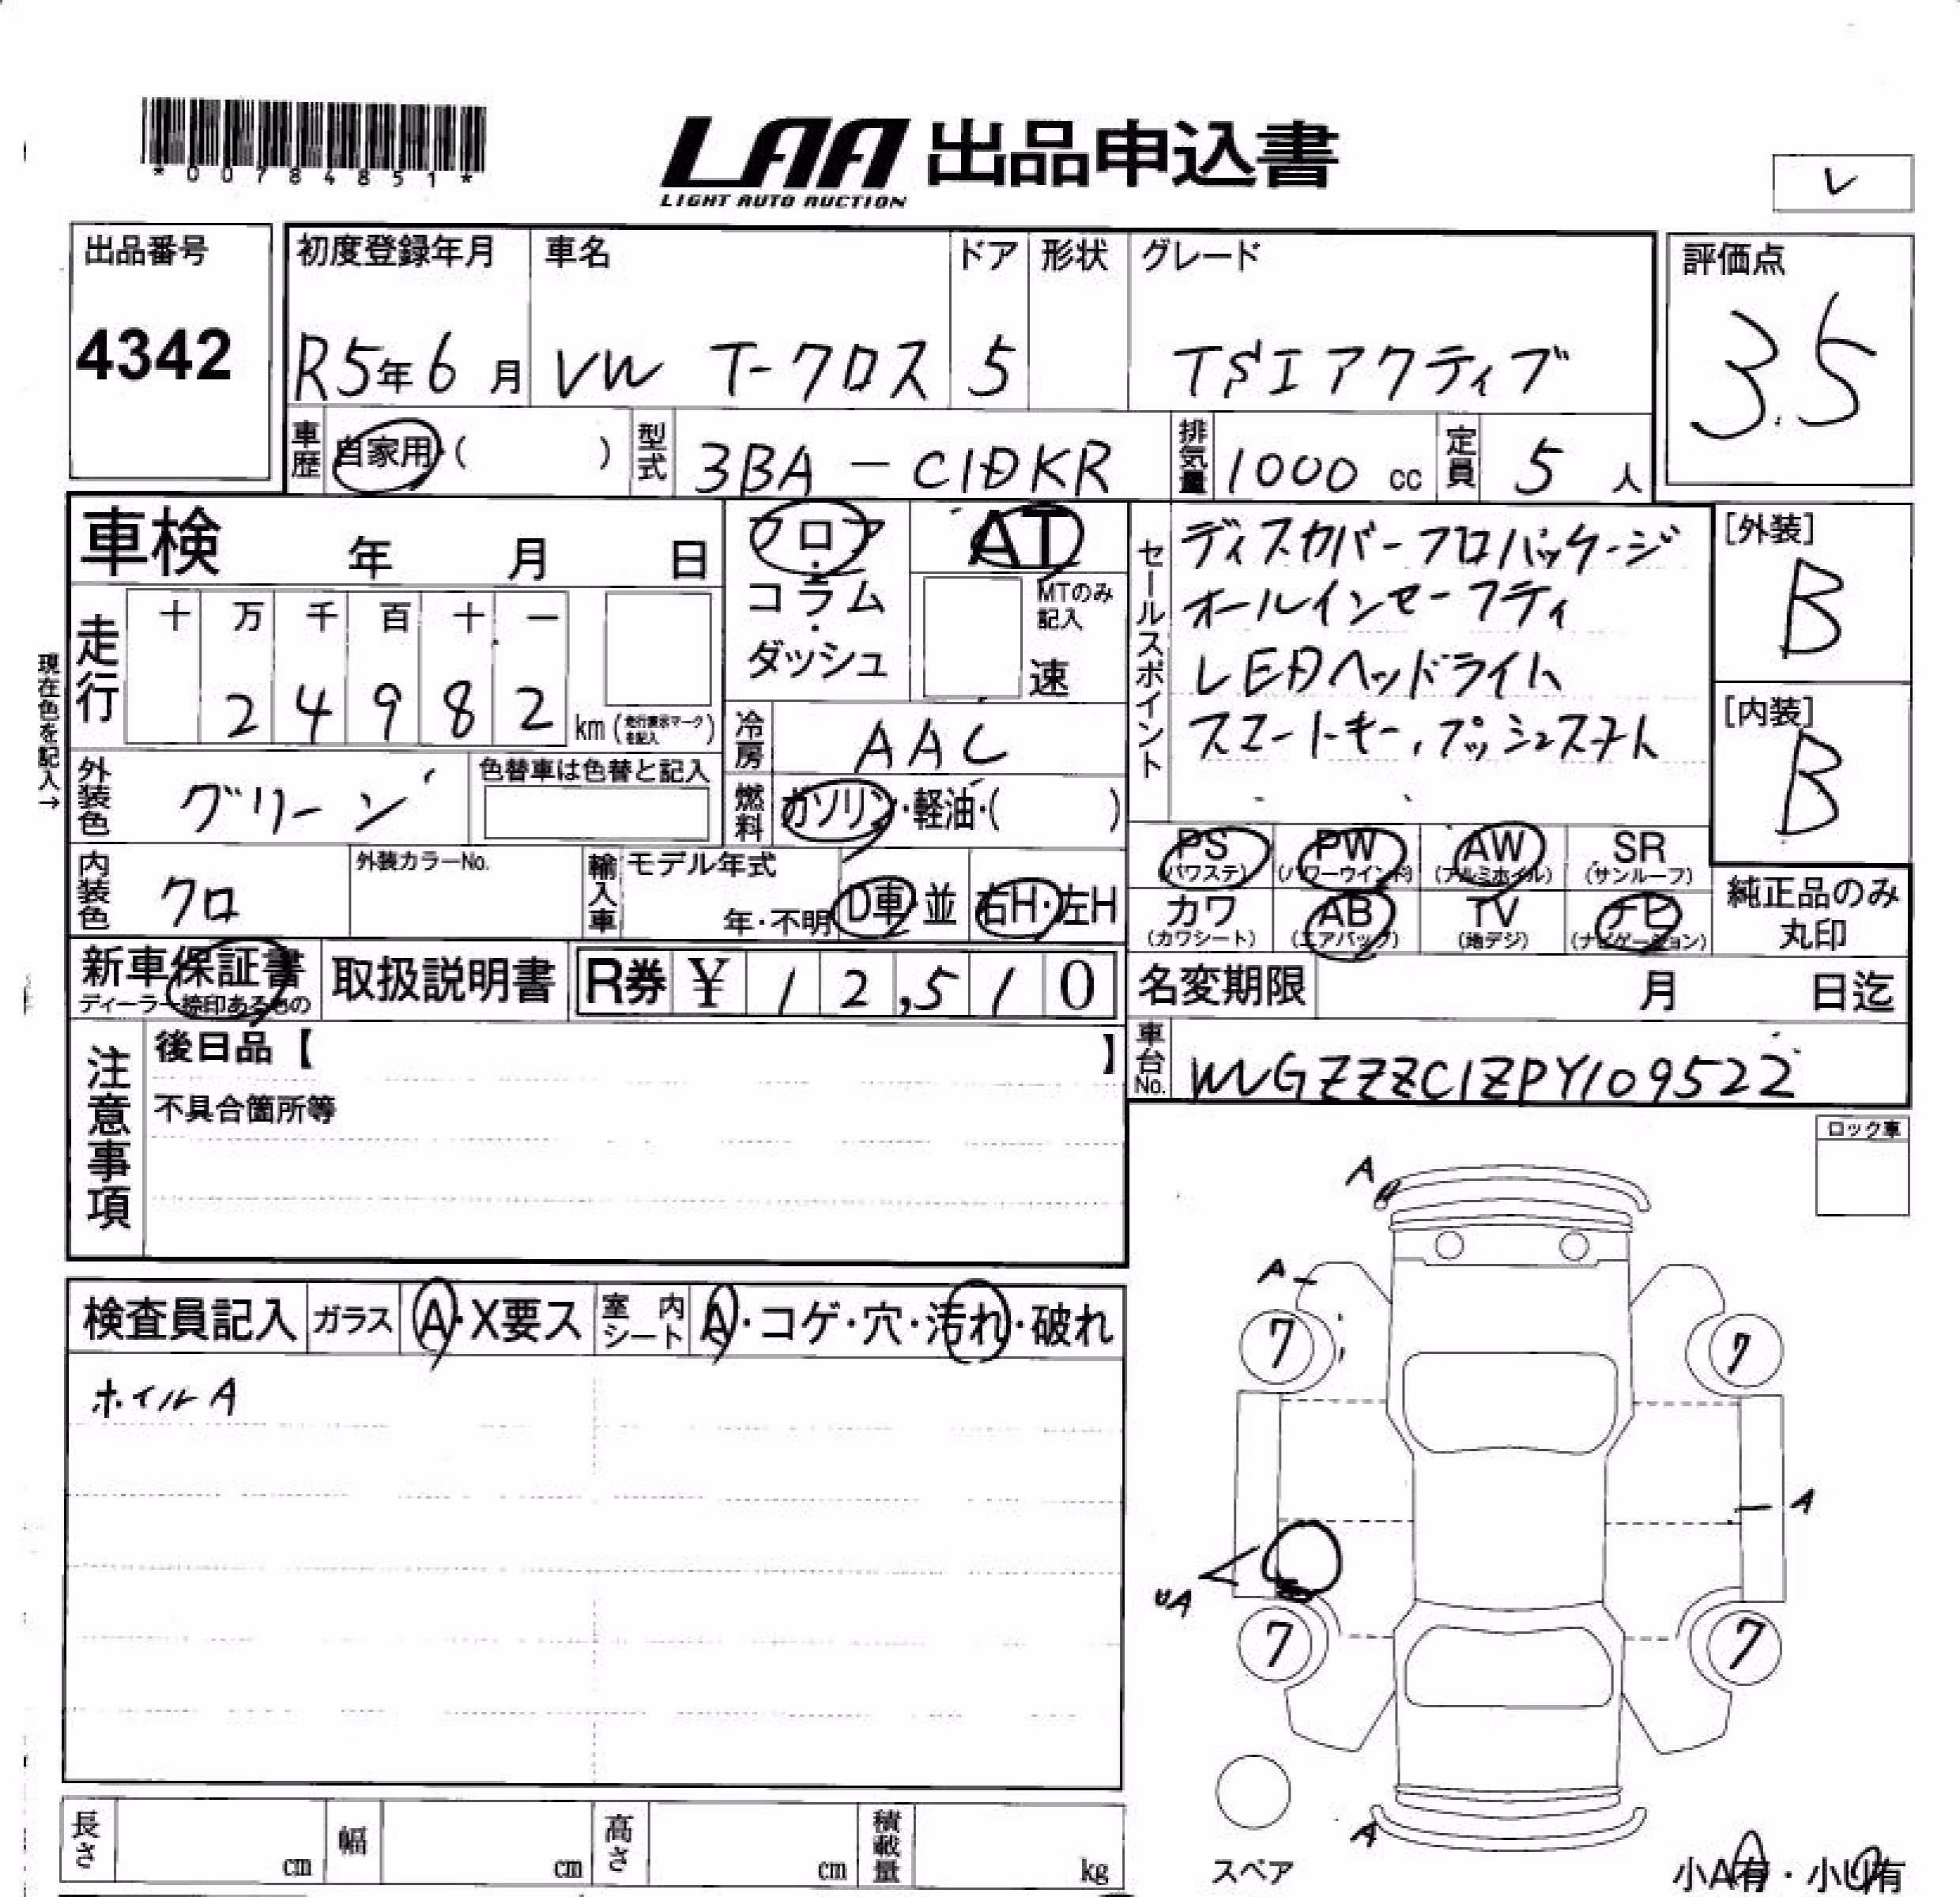 *00784851*
LAA 出品申込書
LIGHT AUTO AUCTION
レ
出品番号
4342
初度登録年月
R5年6月
車名
VW T-クロス
ドア
5
形状
グレード
TSIアクティブ
評価点
3.5
車歴
自家用・( )
型式
3BA-C1DKR
排気量
1000 cc
定員
5 人
車検 年 月 日
フロア・コラム・ダッシュ
AT
MTのみ記入
速
セールスポイント
ディスカバープロパッケージ
オールインセーフティ
LEDヘッドライト
スマートキー、プッシュスタート
[外装]
B
[内装]
B
現在色を記入→
走行
十 万 千 百 十 一
2 4 9 8 2 km(走行表示マークを記入)
冷房
AAC
外装色
グリーン
色替車は色替と記入
燃料
ガソリン・軽油・( )
内装色
クロ
外装カラーNo.
輸入車
モデル年式
年・不明
D車・並
右H・左H
PS (パワステ)
PW (パワーウインド)
AW (アルミホイル)
SR (サンルーフ)
カワ (カワシート)
AB (エアバック)
TV (地デジ)
ナビ (ナビゲーション)
純正品のみ丸印
新車保証書
ディーラー捺印あるもの
取扱説明書
R券 ¥ 12,510
名変期限 月 日迄
注意事項
後日品【 】
不具合箇所等
車台No.
WVGZZZC1ZPY109522
ロック車
検査員記入
ガラス
A・X要ス
室内シート
A・コゲ・穴・汚れ・破れ
ホイルA
A
A
7
7
A
UA
7
7
A
スペア
小A有・小U有
長さ cm
幅 cm
高さ cm
積載量 kg